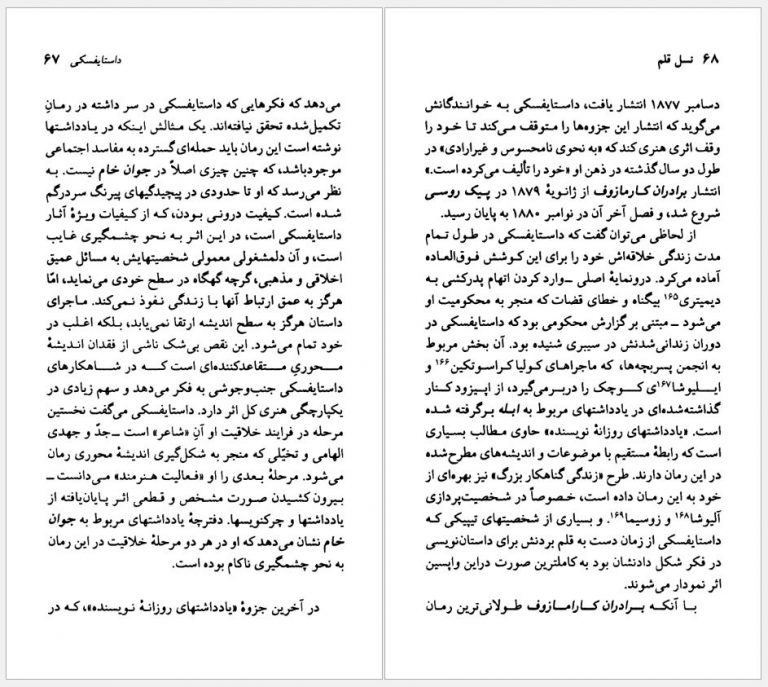 داستایفسکی ۶۷
می‌دهد که فکرهایی که داستایفسکی در سر داشته در رمانِ
تکمیل‌شده تحقق نیافته‌اند. یک مثالش اینکه در یادداشتها
نوشته است این رمان باید حمله‌ای گسترده به مفاسد اجتماعی
موجودباشد، که چنین چیزی اصلاً در جوان خام نیست. به
نظر می‌رسد که او تا حدودی در پیچیدگیهای پیرنگ سردرگم
شده است. کیفیت درونی بودن، که از کیفیات ویژهٔ آثار
داستایفسکی است، در این اثر به نحو چشمگیری غایب
است، و آن دلمشغولی معمولی شخصیتهایش به مسائل عمیق
اخلاقی و مذهبی، گرچه گهگاه در سطح خودی می‌نماید، امّا
هرگز به عمق ارتباط آنها با زندگی نفوذ نمی‌کند. ماجرای
داستان هرگز به سطح اندیشه ارتقا نمی‌یابد، بلکه اغلب در
خود تمام می‌شود. این نقص بی‌شک ناشی از فقدان اندیشهٔ
محوریِ متقاعدکننده‌ای است که در شاهکارهای
داستایفسکی جنب‌وجوشی به فکر می‌دهد و سهم زیادی در
یکپارچگی هنری کل اثر دارد. داستایفسکی می‌گفت نخستین
مرحله در فرایند خلاقیت او آنِ «شاعر» است ــ جدّ و جهدی
الهامی و تخیّلی که منجر به شکل‌گیری اندیشهٔ محوری رمان
می‌شود. مرحلهٔ بعدی را او «فعالیت هنرمند» می‌دانست ــ
بیرون کشیدن صورت مشخص و قطعی اثر پایان‌یافته از
یادداشتها و چرکنویسها. دفترچهٔ یادداشتهای مربوط به جوان
خام نشان می‌دهد که او در هر دو مرحلهٔ خلاقیت در این رمان
به نحو چشمگیری ناکام بوده است.
در آخرین جزوهٔ «یادداشتهای روزانهٔ نویسنده»، که در
۶۸ نسل قلم
دسامبر ۱۸۷۷ انتشار یافت، داستایفسکی به خوانندگانش
می‌گوید که انتشار این جزوه‌ها را متوقف می‌کند تا خود را
وقف اثری هنری کند که «به نحوی نامحسوس و غیرارادی» در
طول دو سال گذشته در ذهن او «خود را تألیف می‌کرده است.»
انتشار برادران کارمازوف از ژانویهٔ ۱۸۷۹ در پیک روسی
شروع شد، و فصل آخر آن در نوامبر ۱۸۸۰ به پایان رسید.
از لحاظی می‌توان گفت که داستایفسکی در طول تمام
مدت زندگی خلاقه‌اش خود را برای این کوشش فوق‌العاده
آماده می‌کرد. درونمایهٔ اصلی ــ وارد کردن اتهام پدرکشی به
دیمیتری۱۶۵ بیگناه و خطای قضات که منجر به محکومیت او
می‌شود ــ مبتنی بر گزارش محکومی بود که داستایفسکی در
دوران زندانی‌شدنش در سیبری شنیده بود. آن بخش مربوط
به انجمن پسربچه‌ها، که ماجراهای کولیا کراسوتکین۱۶۶ و
ایلیوشا۱۶۷ی کوچک را دربرمی‌گیرد، از اپیزود کنار
گذاشته‌شده‌ای در یادداشتهای مربوط به ابله برگرفته شده
است. «یادداشتهای روزانهٔ نویسنده» حاوی مطالب بسیاری
است که رابطهٔ مستقیم با موضوعات و اندیشه‌های مطرح‌شده
در این رمان دارند. طرح «زندگی گناهکار بزرگ» نیز بهره‌ای از
خود به این رمان داده است، خصوصاً در شخصیت‌پردازی
آلیوشا۱۶۸ و زوسیما۱۶۹. و بسیاری از شخصیتهای تیپیکی که
داستایفسکی از زمان دست به قلم بردنش برای داستان‌نویسی
در فکر شکل دادنشان بود به کاملترین صورت دراین واپسین
اثر نمودار می‌شوند.
با آنکه برادران کارامازوف طولانی‌ترین رمان